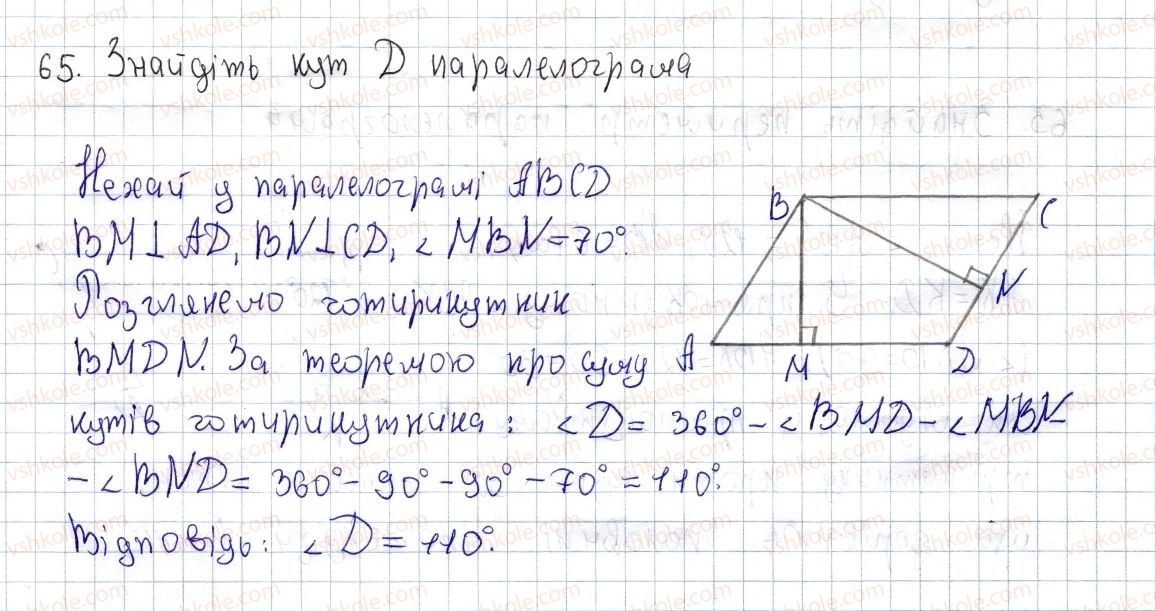 65. Знайдіть кут D паралелограма
Нехай у паралелограмі ABCD
BM⊥AD, BN⊥CD, ∠MBN=70°.
Розглянемо чотирикутник
BMDN. За теоремою про суму
кутів чотирикутника: ∠D = 360° - ∠BMD - ∠MBN
- ∠BND = 360° - 90° - 90° - 70° = 110°.
Відповідь: ∠D = 110°.
B
C
N
A
M
D
vshkole.com